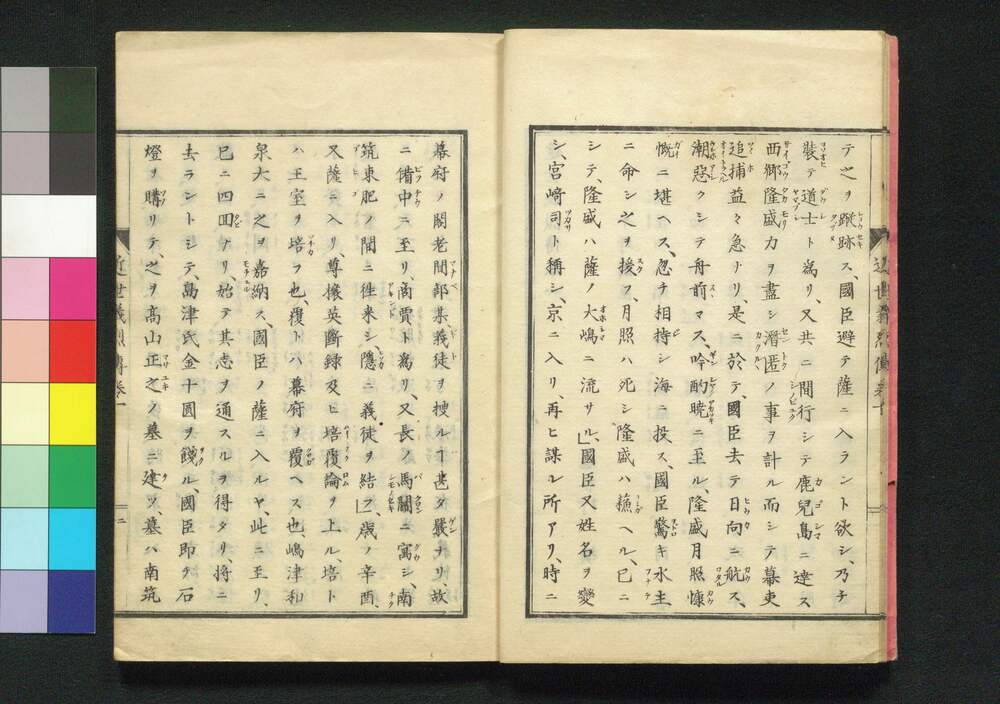 テ之ヲ蹤跡ス、國臣避テ薩ニ入ラント欲シ、乃チ
裝テ道士ト爲リ、又共ニ間行シテ鹿兒島ニ達ス
西郷隆盛力ヲ盡シ潛匿ノ事ヲ計ル而シテ幕吏
追捕益々急ナリ、是ニ於テ國臣去テ日向ニ航ス、
潮惡クシテ舟前マス、吟酌曉ニ至ル、隆盛月照慷
慨ニ堪ヘス、忽チ相持シ海ニ投ス、國臣驚キ水主
ニ命シ之ヲ援フ、月照ハ死シ隆盛ハ蘇ヘル、已ニ
シテ、隆盛ハ薩ノ大嶋ニ流サル」國臣又姓名ヲ變
シ、宮﨑司ト稱シ、京ニ入リ、再ヒ謀ル所アリ、時ニ
近世義烈傳卷一
二
幕府ノ閣老間部某義徒ヲ捜ルヿ甚タ嚴ナリ、故
ニ備中ニ至リ、商賈ト爲リ、又長ノ馬關ニ寓シ、南
筑東肥ノ間ニ徃來シ、隱ニ義徒ヲ結フ」歳ノ辛酉、
又薩ニ入リ、尊攘英斷録及ヒ培覆論ヲ上ル、培ト
ハ王室ヲ培フ也、覆トハ幕府ヲ覆ヘス也、嶋津和
泉大ニ之ヲ嘉納ス、國臣ノ薩ニ入ルヤ、此ニ至リ、
已ニ四回ナリ、始テ其志ヲ通スルヲ得タリ、將ニ
去ラントシテ、島津氏金十圓ヲ餞ル、國臣即チ石
燈ヲ購リテ、之ヲ高山正之ノ墓ニ建ツ、墓ハ南筑